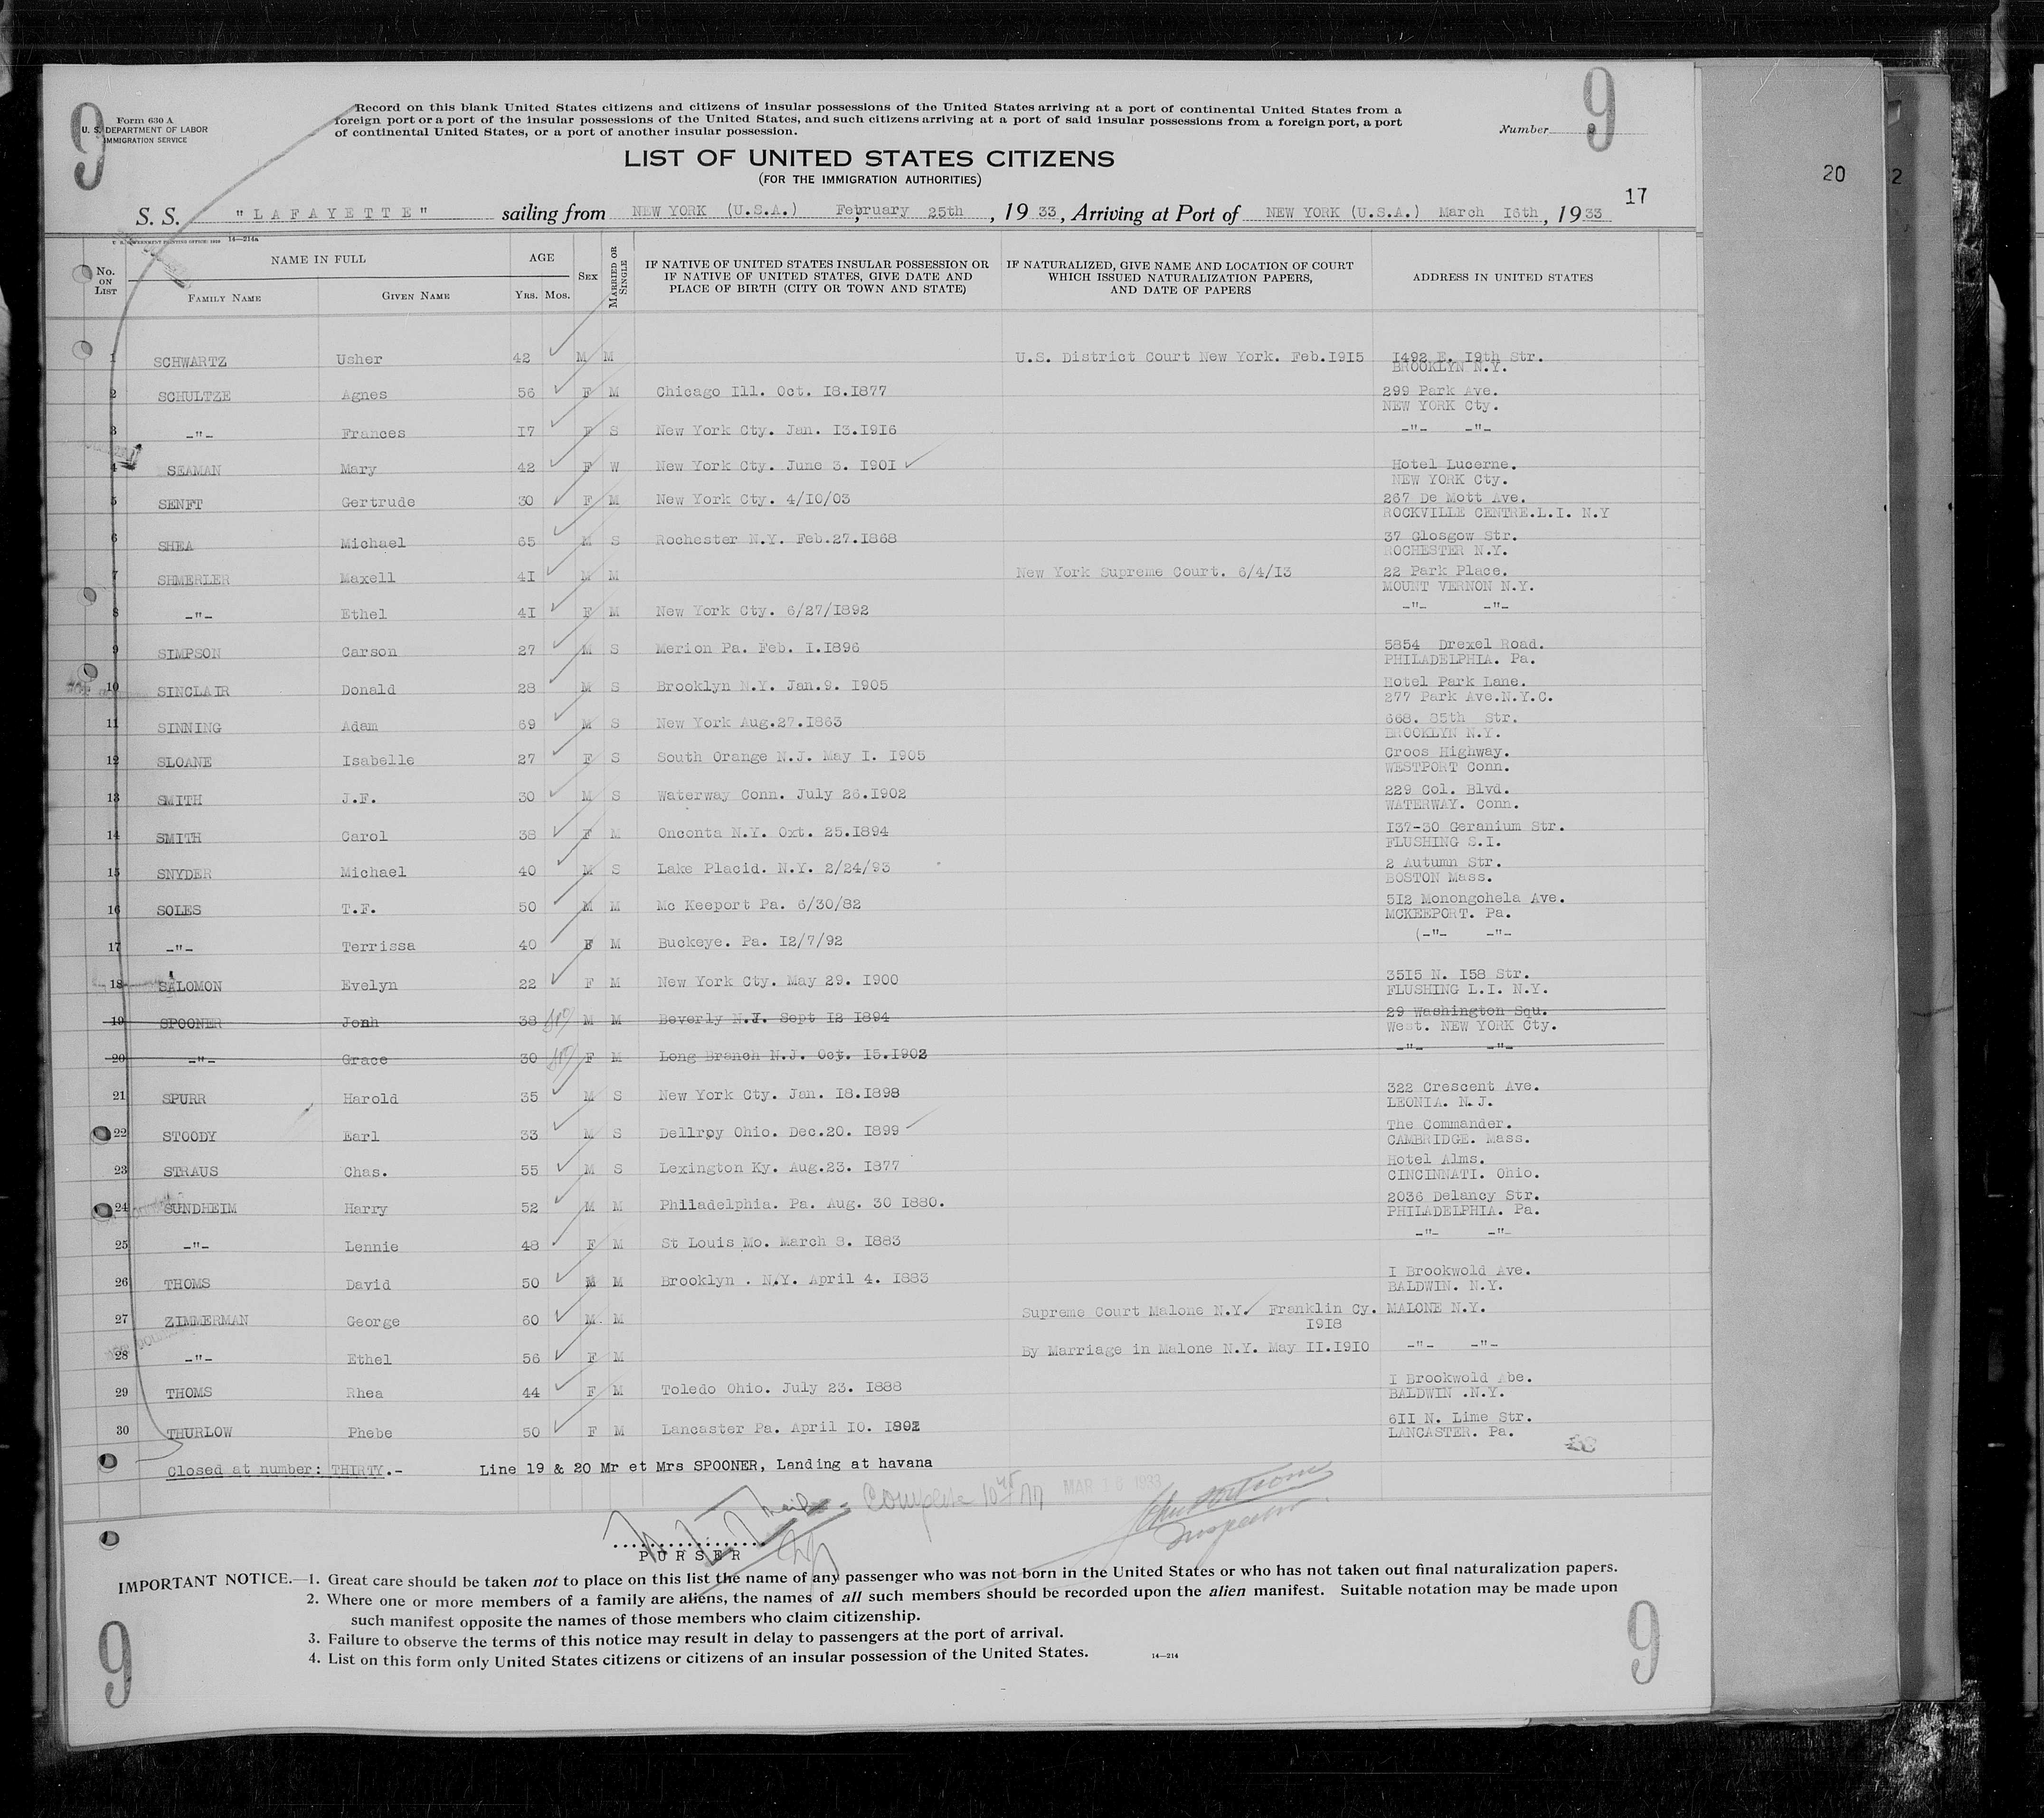 9
9
Form 630 A
U. S. DEPARTMENT OF LABOR
IMMIGRATION SERVICE
Record on this blank United States citizens and citizens of insular possessions of the United States arriving at a port of continental United States from a
foreign port or a port of the insular possessions of the United States, and such citizens arriving at a port of said insular possessions from a foreign port, a port
of continental United States, or a port of another insular possession.
Number 9
LIST OF UNITED STATES CITIZENS
(FOR THE IMMIGRATION AUTHORITIES)
20
2
17
S. S. "LAFAYETTE" sailing from NEW YORK (U.S.A.) February 25th, 1933, Arriving at Port of NEW YORK (U.S.A.) March I6th, 1933
14—214a
No. ON LIST
NAME IN FULL
FAMILY NAME
GIVEN NAME
AGE
YRS. MOS.
SEX
MARRIED OR SINGLE
IF NATIVE OF UNITED STATES INSULAR POSSESSION OR
IF NATIVE OF UNITED STATES, GIVE DATE AND
PLACE OF BIRTH (CITY OR TOWN AND STATE)
IF NATURALIZED, GIVE NAME AND LOCATION OF COURT
WHICH ISSUED NATURALIZATION PAPERS,
AND DATE OF PAPERS
ADDRESS IN UNITED STATES
1 SCHWARTZ Usher 42 M M U.S. District Court New York. Feb.I9I5 I492 E. I9th Str.
BROOKLYN N.Y.
2 SCHULTZE Agnes 56 F M Chicago Ill. Oct. I8.I877 299 Park Ave.
NEW YORK Cty.
3 -"- Frances I7 F S New York Cty. Jan. I3.I9I6 -"- -"-
4 SEAMAN Mary 42 F W New York Cty. June 3. I90I Hotel Lucerne.
NEW YORK Cty.
5 SENFT Gertrude 30 F M New York Cty. 4/I0/03 267 De Mott Ave.
ROCKVILLE CENTRE.L.I. N.Y
6 SHEA Michael 65 M S Rochester N.Y. Feb.27.I868 37 Glosgow Str.
ROCHESTER N.Y.
7 SHMERLER Maxell 4I M M New York Supreme Court. 6/4/I3 22 Park Place.
MOUNT VERNON N.Y.
8 -"- Ethel 4I F M New York Cty. 6/27/I892 -"- -"-
9 SIMPSON Carson 27 M S Merion Pa. Feb. I.I896 5854 Drexel Road.
PHILADELPHIA. Pa.
10 SINCLAIR Donald 28 M S Brooklyn N.Y. Jan.9. I905 Hotel Park Lane.
277 Park Ave.N.Y.C.
11 SINNING Adam 69 M S New York Aug.27.I863 668. 85th Str.
BROOKLYN N.Y.
12 SLOANE Isabelle 27 F S South Orange N.J. May I. I905 Croos Highway.
WESTPORT Conn.
13 SMITH J.F. 30 M S Waterway Conn. July 26.I902 229 Col. Blvd.
WATERWAY. Conn.
14 SMITH Carol 38 F M Onconta N.Y. Oxt. 25.I894 I37-30 Geranium Str.
FLUSHING S.I.
15 SNYDER Michael 40 M S Lake Placid. N.Y. 2/24/93 2 Autumn Str.
BOSTON Mass.
16 SOLES T.F. 50 M M Mc Keeport Pa. 6/30/82 5I2 Monongohela Ave.
MCKEEPORT. Pa.
17 -"- Terrissa 40 F M Buckeye. Pa. I2/7/92 (-"- -"-
18 SALOMON Evelyn 22 F M New York Cty. May 29. I900 35I5 N. I58 Str.
FLUSHING L.I. N.Y.
19 SPOONER Jonh 38 M M Beverly N.J. Sept I2 I894 29 Washington Squ.
West. NEW YORK Cty.
20 -"- Grace 30 F M Long Branch N.J. Oct. I5.I902 -"- -"-
21 SPURR Harold 35 M S New York Cty. Jan. I8.I898 322 Crescent Ave.
LEONIA. N.J.
22 STOODY Earl 33 M S Dellrpy Ohio. Dec.20. I899 The Commander.
CAMBRIDGE. Mass.
23 STRAUS Chas. 55 M S Lexington Ky. Aug.23. I877 Hotel Alms.
CINCINNATI. Ohio.
24 SUNDHEIM Harry 52 M M Philadelphia. Pa. Aug. 30 I880. 2036 Delancy Str.
PHILADELPHIA. Pa.
25 -"- Lennie 48 F M St Louis Mo. March 8. I883 -"- -"-
26 THOMS David 50 M M Brooklyn . N.Y. April 4. I883 I Brookwold Ave.
BALDWIN. N.Y.
27 ZIMMERMAN George 60 M M Supreme Court Malone N.Y. Franklin Cy. MALONE N.Y.
I9I8
28 -"- Ethel 56 F M By Marriage in Malone N.Y. May II.I9I0 -"- -"-
29 THOMS Rhea 44 F M Toledo Ohio. July 23. I888 I Brookwold Abe.
BALDWIN .N.Y.
30 THURLOW Phebe 50 F M Lancaster Pa. April I0. I892 6II N. Lime Str.
LANCASTER. Pa.
Closed at number: THIRTY.- Line I9 & 20 Mr et Mrs SPOONER, Landing at havana
Complete
MAR 16 1933
Inspector
PURSER
IMPORTANT NOTICE.—1. Great care should be taken not to place on this list the name of any passenger who was not born in the United States or who has not taken out final naturalization papers.
2. Where one or more members of a family are aliens, the names of all such members should be recorded upon the alien manifest. Suitable notation may be made upon
such manifest opposite the names of those members who claim citizenship.
3. Failure to observe the terms of this notice may result in delay to passengers at the port of arrival.
4. List on this form only United States citizens or citizens of an insular possession of the United States.
14—214
9
9